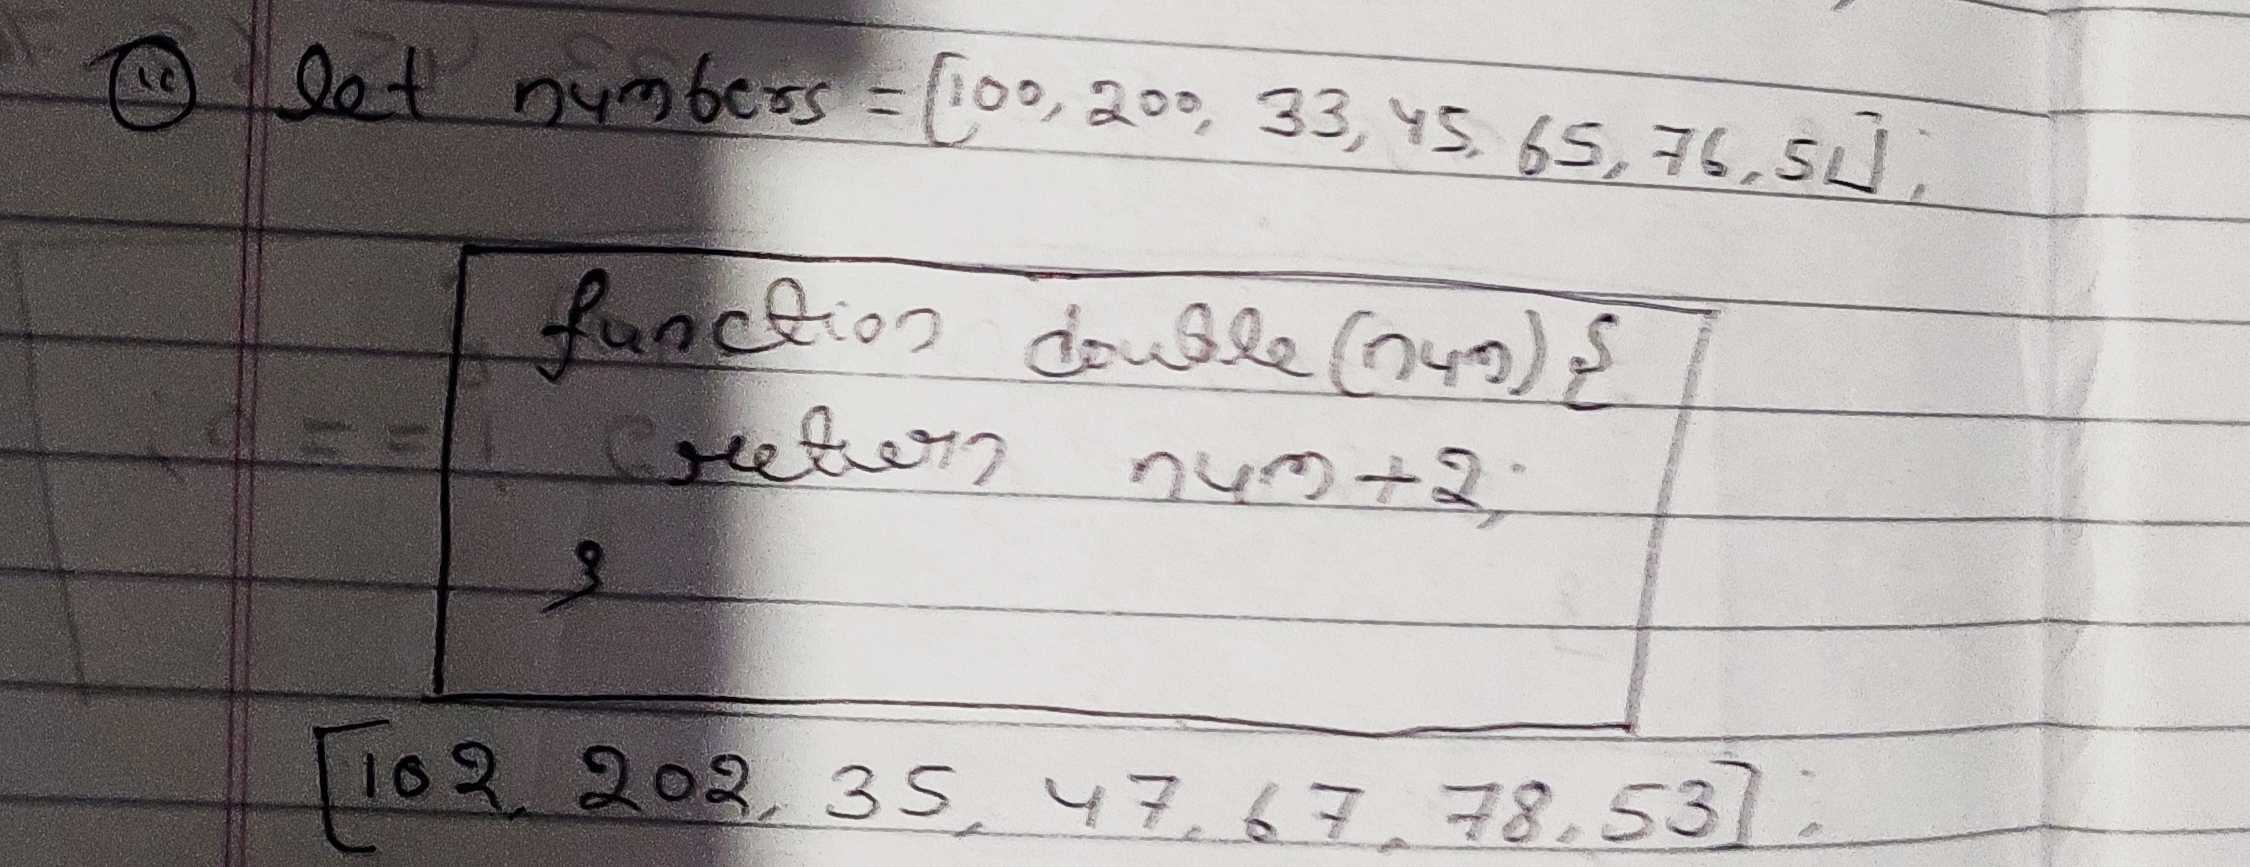 (ii) let numbers = [100, 200, 33, 45, 65, 76, 51];
function double(num) {
return num+2;
}
[102, 202, 35, 47, 67, 78, 53];